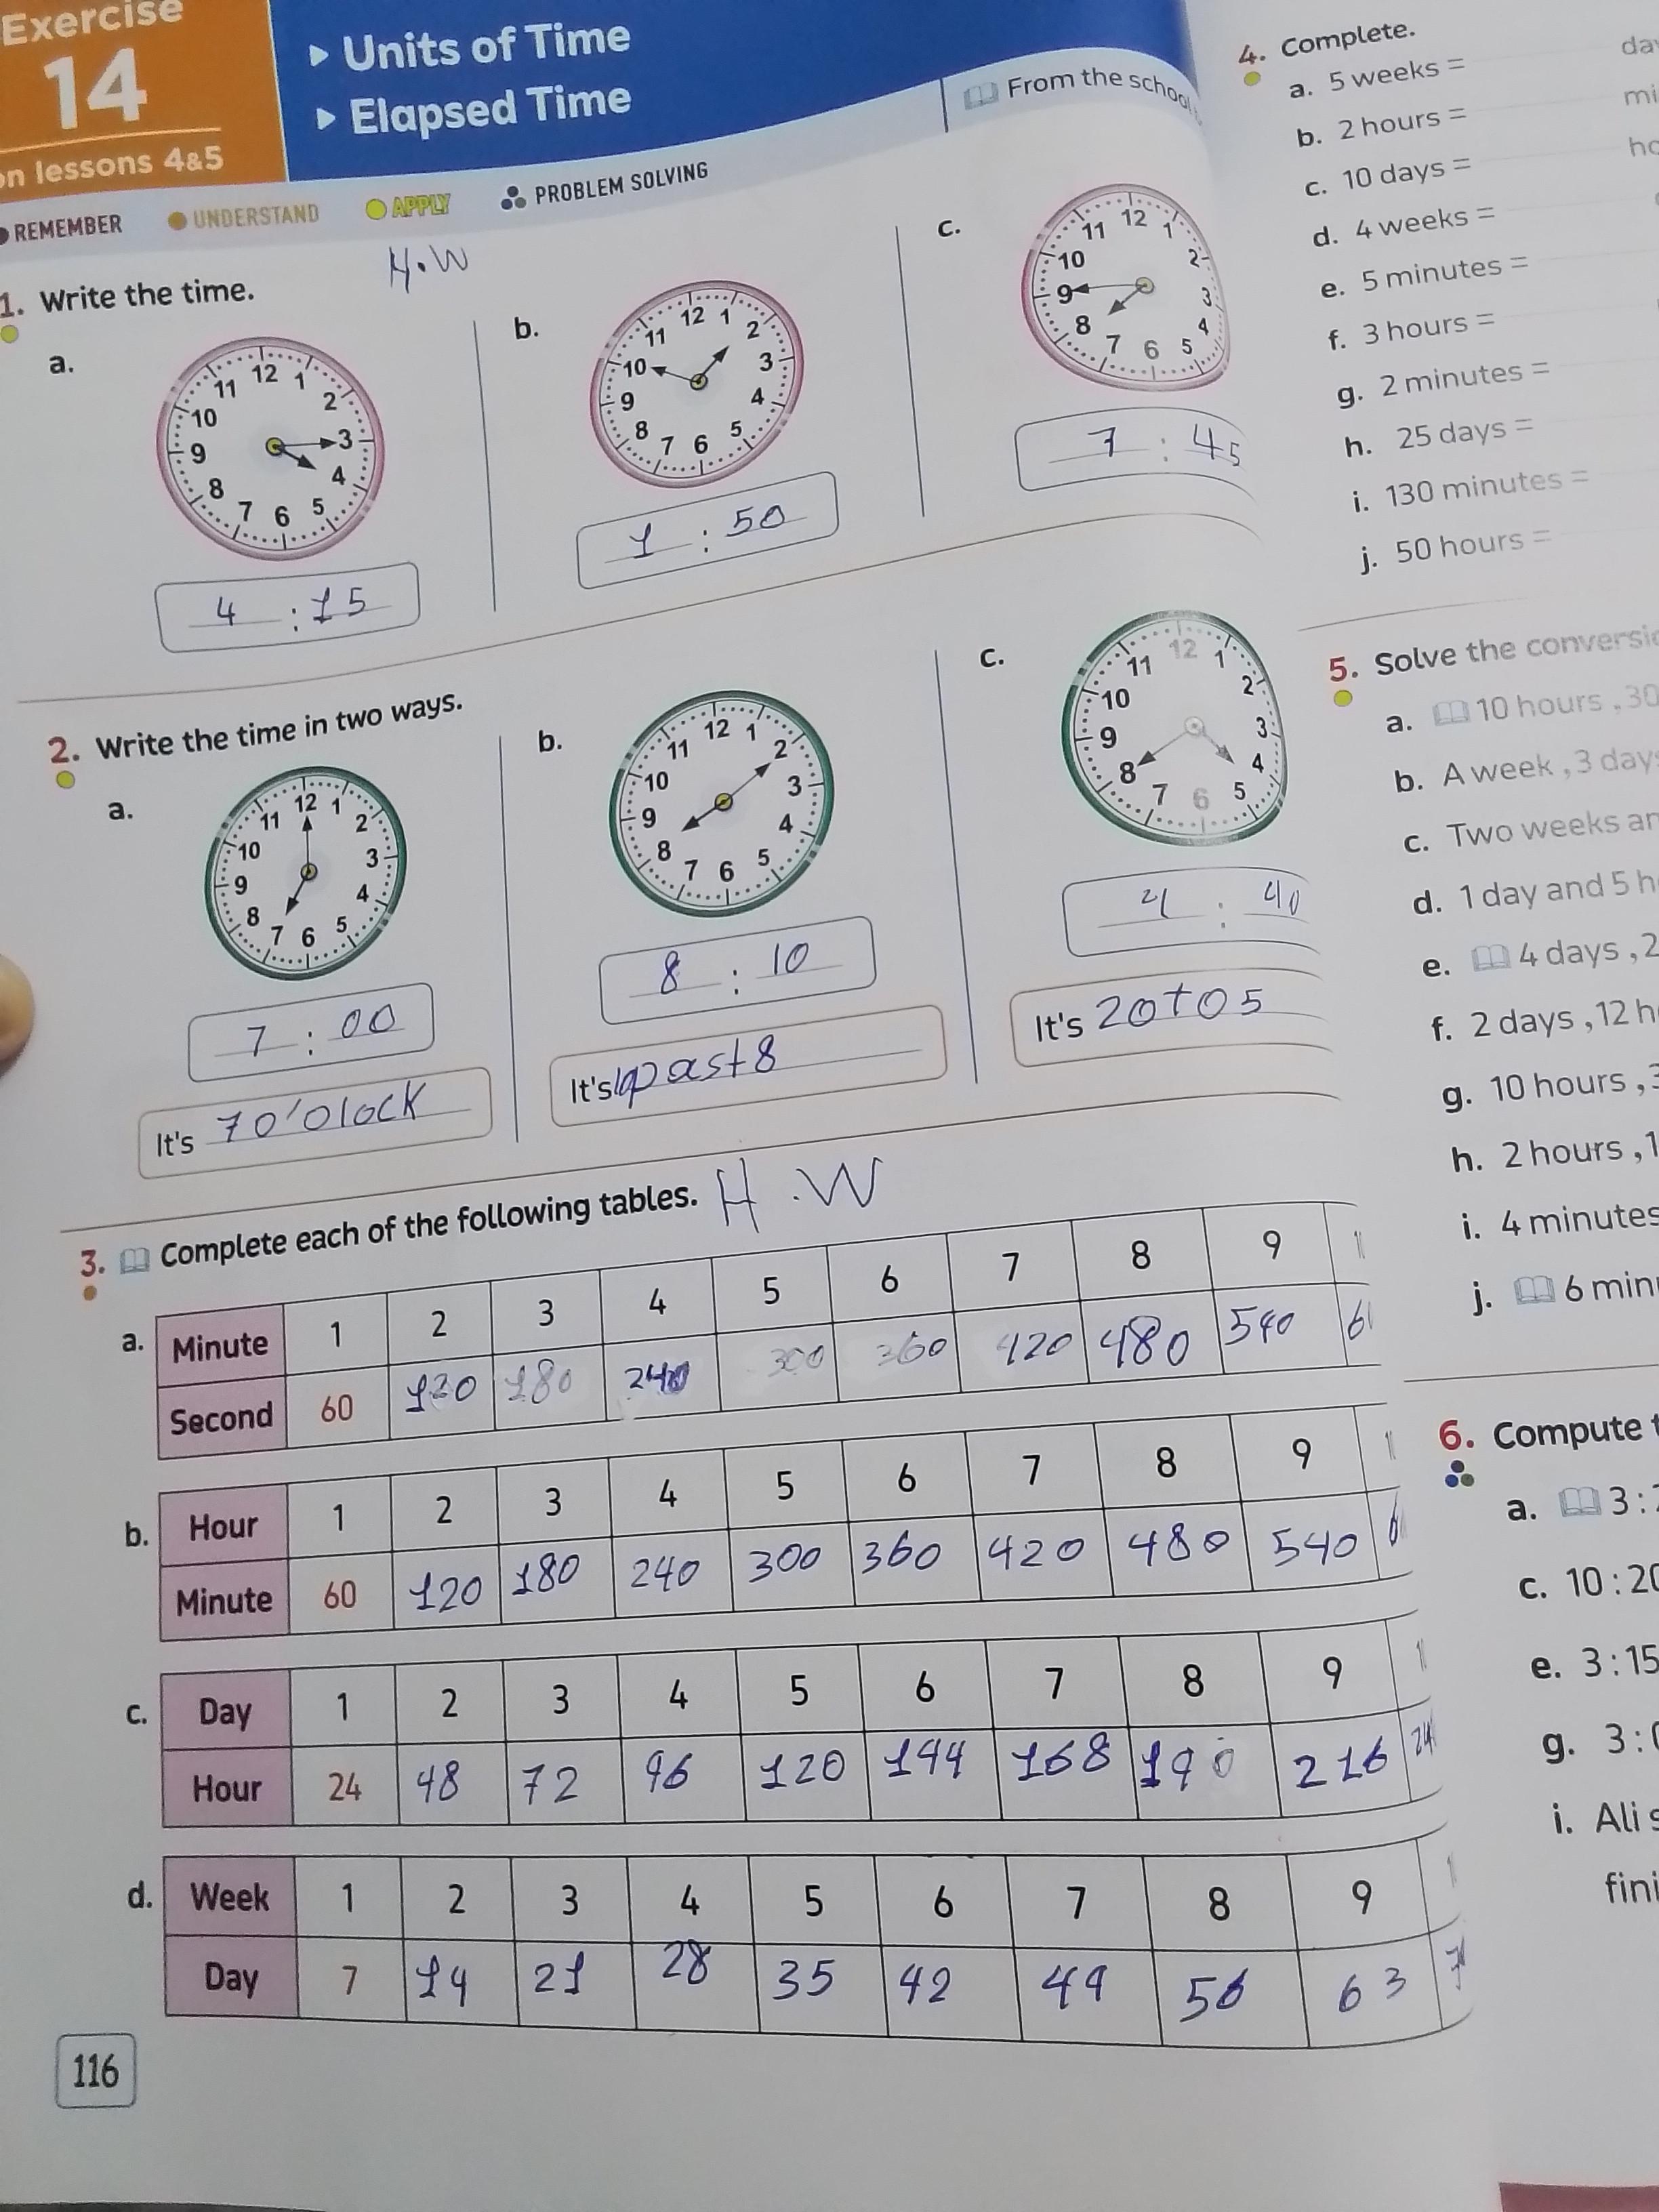 Exercise
14
on lessons 4&5
Units of Time
Elapsed Time
From the school
REMEMBER UNDERSTAND APPLY PROBLEM SOLVING
H.W
1. Write the time.
a.
12 1 2 3 4 5 6 7 8 9 10 11
4 : 15
b.
12 1 2 3 4 5 6 7 8 9 10 11
1 : 50
c.
12 1 2 3 4 5 6 7 8 9 10 11
7 : 45
2. Write the time in two ways.
a.
12 1 2 3 4 5 6 7 8 9 10 11
7 : 00
It's 7 o'olock
b.
12 1 2 3 4 5 6 7 8 9 10 11
8 : 10
It's 10 past 8
c.
12 1 2 3 4 5 6 7 8 9 10 11
4 : 40
It's 20 to 5
3. Complete each of the following tables. H.W
a. Minute 1 2 3 4 5 6 7 8 9
Second 60 120 180 240 300 360 420 480 540
b. Hour 1 2 3 4 5 6 7 8 9
Minute 60 120 180 240 300 360 420 480 540
c. Day 1 2 3 4 5 6 7 8 9
Hour 24 48 72 96 120 144 168 190 216
d. Week 1 2 3 4 5 6 7 8 9
Day 7 14 21 28 35 42 49 56 63
116
4. Complete.
a. 5 weeks =
b. 2 hours =
c. 10 days =
d. 4 weeks =
e. 5 minutes =
f. 3 hours =
g. 2 minutes =
h. 25 days =
i. 130 minutes =
j. 50 hours =
5. Solve the
a. 10 hours , 30
b. A week , 3
c. Two weeks
d. 1 day and 5
e. 4 days , 2
f. 2 days , 12
g. 10 hours ,
h. 2 hours , 1
i. 4 minutes
j. 6
6. Compute
a. 3 :
c. 10 : 20
e. 3 : 15
g. 3 :
i. Ali